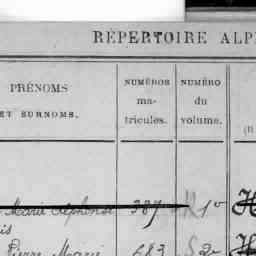 RÉPERTOIRE ALP
PRÉNOMS
ET SURNOMS.
NUMÉROS
ma-
tricules.
NUMÉRO
du
volume.
Marie Alphonse 387 1
is
Pierre Marie 683 2